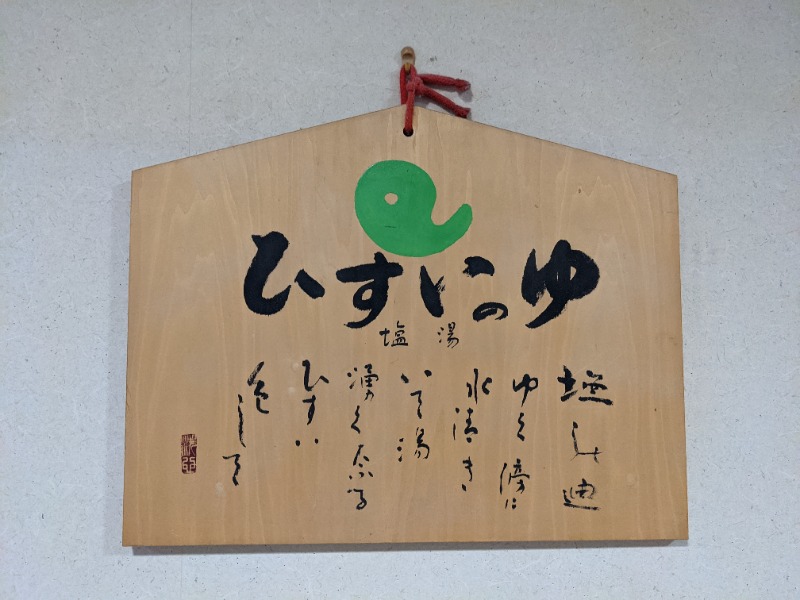 ひすいのゆ
塩湯
塩の道
ゆく傍に
水清き
いで湯
湧く奈る
ひすい
色して